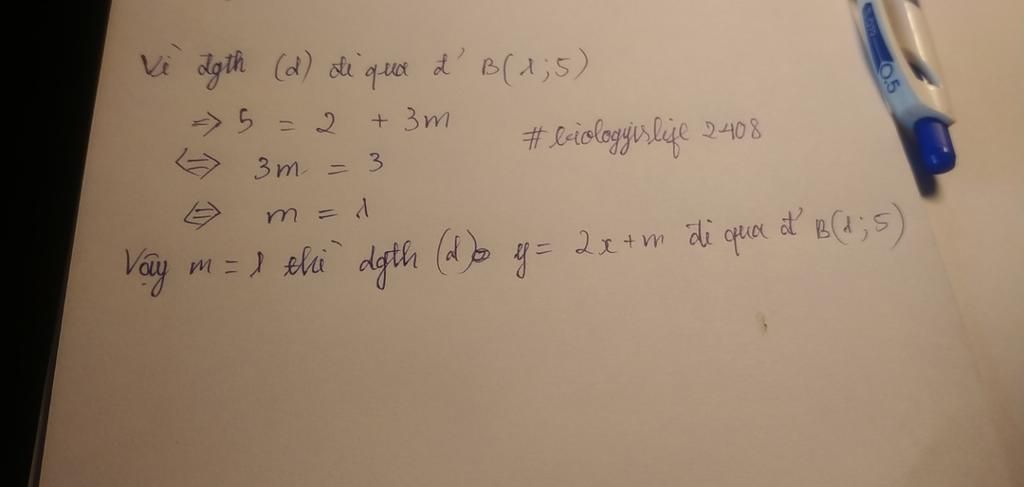 Vì đgth (d) đi qua đ' B(1;5)
=> 5 = 2 + 3m
<=> 3m = 3
#biologyislife 2408
<=> m = 1
Vậy m = 1 thì đgth (d) y = 2x + m đi qua đ' B(1;5)
0.5